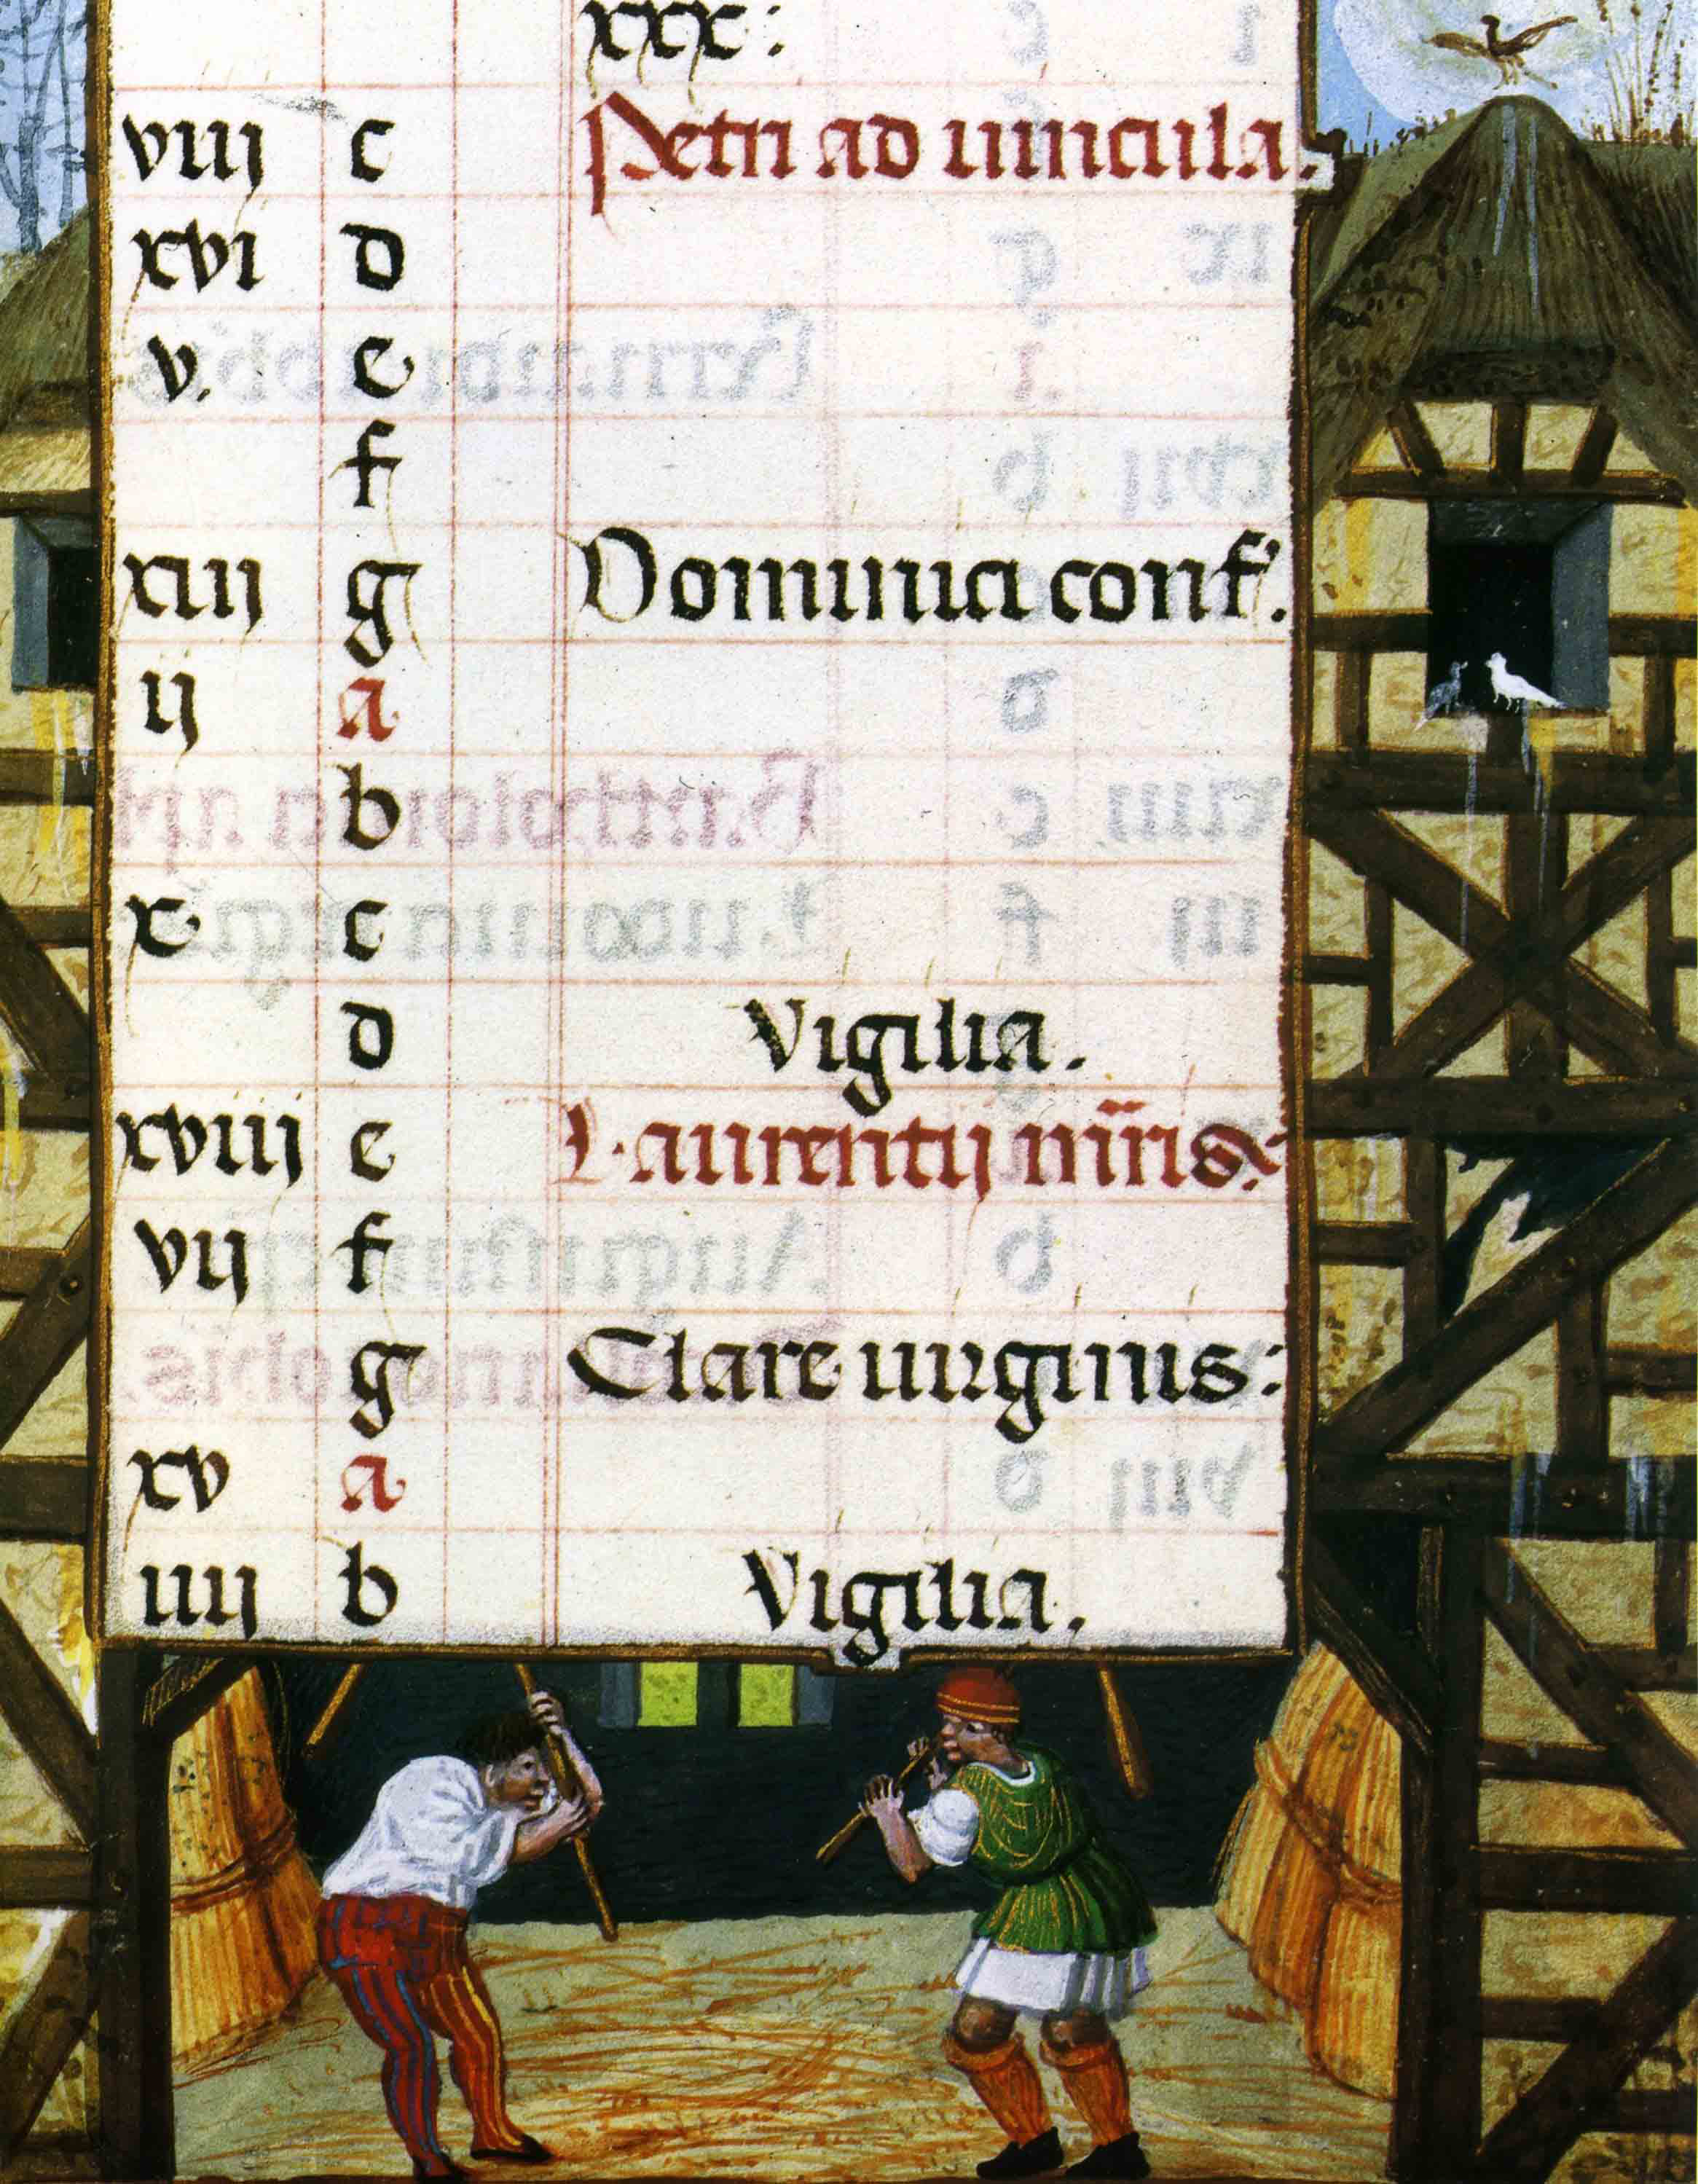 xxx:
viij c Petri ad uincula.
xvi d
v. e
f
xiij g Dominici conf.
ij a
b
x c
d Vigilia.
xviij e Laurentij mr̄is:
vij f
g Clare uirginis:
xv a
iiij b Vigilia.